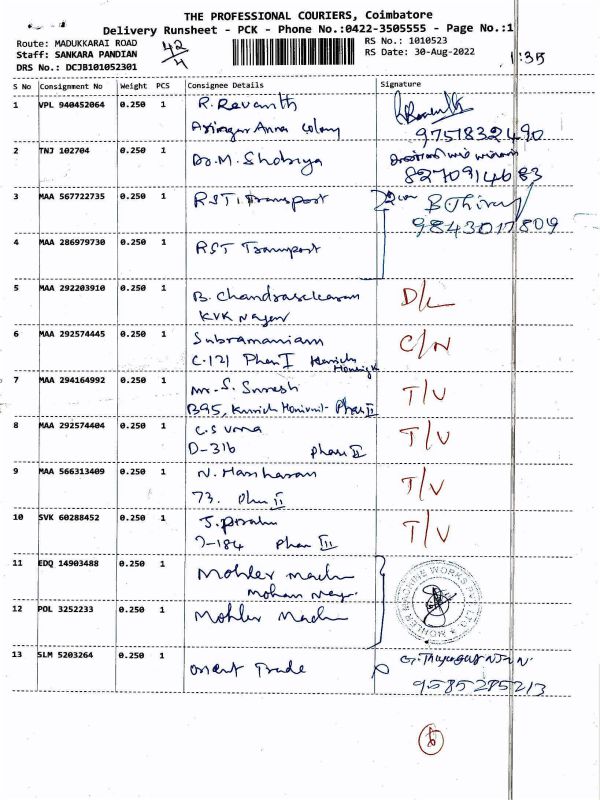 THE PROFESSIONAL COURIERS, Coimbatore
Delivery Runsheet - PCK - Phone No.:0422-3505555 - Page No.:1
Route: MADUKKARAI ROAD 42/4 RS No.: 1010523
Staff: SANKARA PANDIAN RS Date: 30-Aug-2022 1:35
DRS No.: DCJB101052301
S No Consignment No Weight PCS Consignee Details Signature
1 VPL 940452064 0.250 1 R. Revanth
Anna Colony 9751832490
2 TNJ 102704 0.250 1 Dr. M. Shobiya
8270914683
3 MAA 567722735 0.250 1 RST Transport B. Thiru
9843017809
4 MAA 286979730 0.250 1 RST Transport
5 MAA 292203910 0.250 1 B. Chandrasekaran D/L
KVK Nagar
6 MAA 292574445 0.250 1 Subramaniam C/N
C.121 Phase I
7 MAA 294164992 0.250 1 Mr. S. Suresh T/V
B95, Phase II
8 MAA 292574404 0.250 1 C.S Uma T/V
D-316 Phase II
9 MAA 566313409 0.250 1 N. Hariharan T/V
73. Phase II
10 SVK 60288452 0.250 1 J. Prabhu T/V
J-184 Phase III
11 EDQ 14903488 0.250 1 Mohler Machine
Mohan Nagar
12 POL 3252233 0.250 1 Mohler Machine
13 SLM 5203264 0.250 1 Orient Trade
9585285213